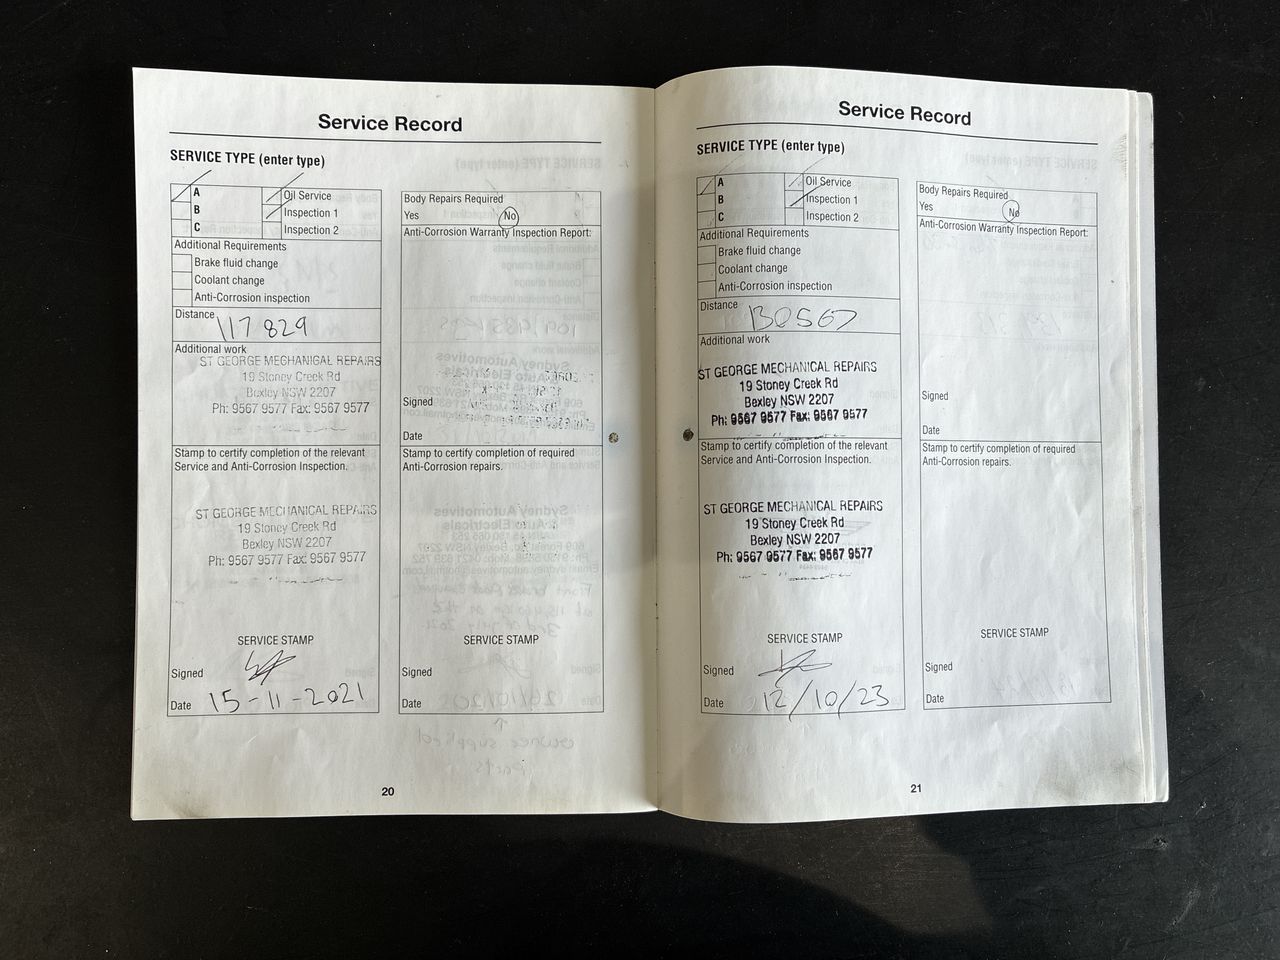 Service Record
SERVICE TYPE (enter type)
A
B
C
Oil Service
Inspection 1
Inspection 2
Additional Requirements
Brake fluid change
Coolant change
Anti-Corrosion inspection
Distance
117 829
Additional work
ST GEORGE MECHANICAL REPAIRS
19 Stoney Creek Rd
Bexley NSW 2207
Ph: 9567 9577 Fax: 9567 9577
Stamp to certify completion of the relevant
Service and Anti-Corrosion Inspection.
ST GEORGE MECHANICAL REPAIRS
19 Stoney Creek Rd
Bexley NSW 2207
Ph: 9567 9577 Fax: 9567 9577
SERVICE STAMP
Signed
Date 15-11-2021
Body Repairs Required
Yes No
Anti-Corrosion Warranty Inspection Report:
Signed
Date
Stamp to certify completion of required
Anti-Corrosion repairs.
SERVICE STAMP
Signed
Date
20
Service Record
SERVICE TYPE (enter type)
A
B
C
Oil Service
Inspection 1
Inspection 2
Additional Requirements
Brake fluid change
Coolant change
Anti-Corrosion inspection
Distance
130567
Additional work
ST GEORGE MECHANICAL REPAIRS
19 Stoney Creek Rd
Bexley NSW 2207
Ph: 9567 9577 Fax: 9567 9577
Stamp to certify completion of the relevant
Service and Anti-Corrosion Inspection.
ST GEORGE MECHANICAL REPAIRS
19 Stoney Creek Rd
Bexley NSW 2207
Ph: 9567 9577 Fax: 9567 9577
SERVICE STAMP
Signed
Date 12/10/23
Body Repairs Required
Yes No
Anti-Corrosion Warranty Inspection Report:
Signed
Date
Stamp to certify completion of required
Anti-Corrosion repairs.
SERVICE STAMP
Signed
Date
21